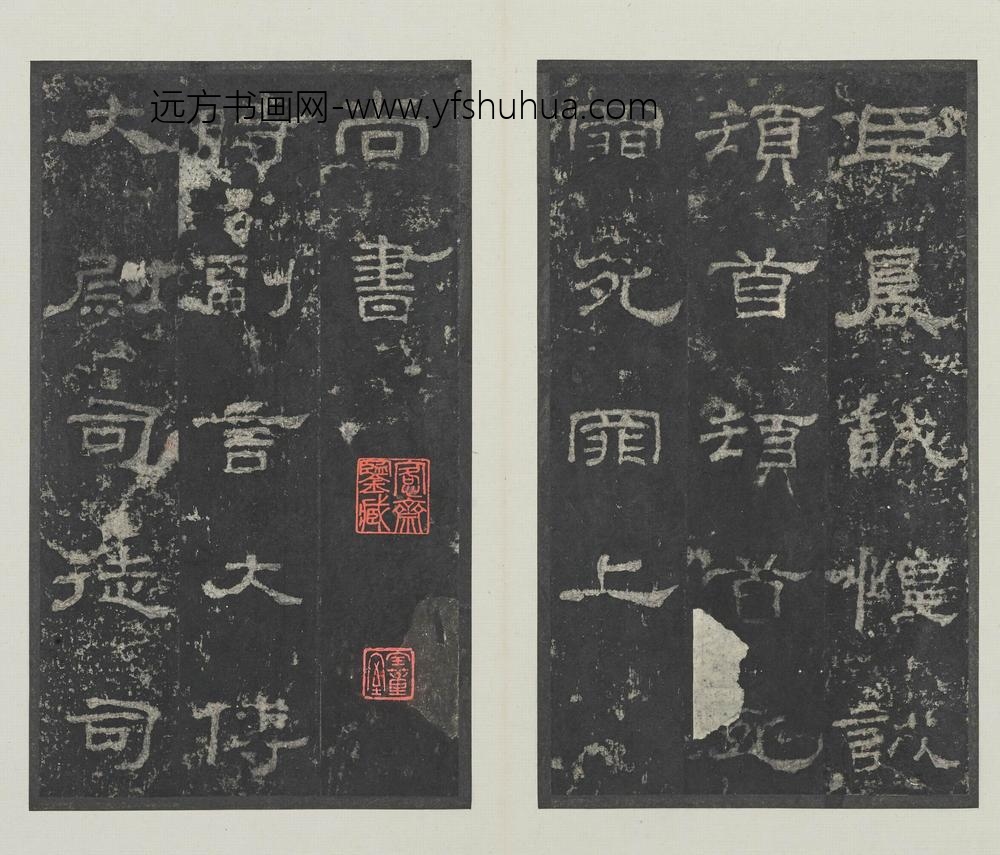 远方书画网-www.yfshuhua.com
臣晨誠惶誠
頓首頓首死
罪死罪上
尚書
時副言大傅
大尉司徒司